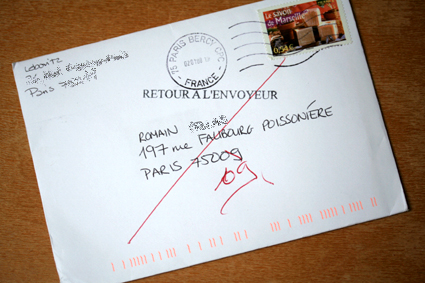 Lebovitz
Paris
75 PARIS BERCY CTC
FRANCE
Le Savon
de Marseille
0,54 €
RETOUR A L'ENVOYEUR
ROMAIN
197 rue FAUBOURG POISSONIÈRE
PARIS 75009
09